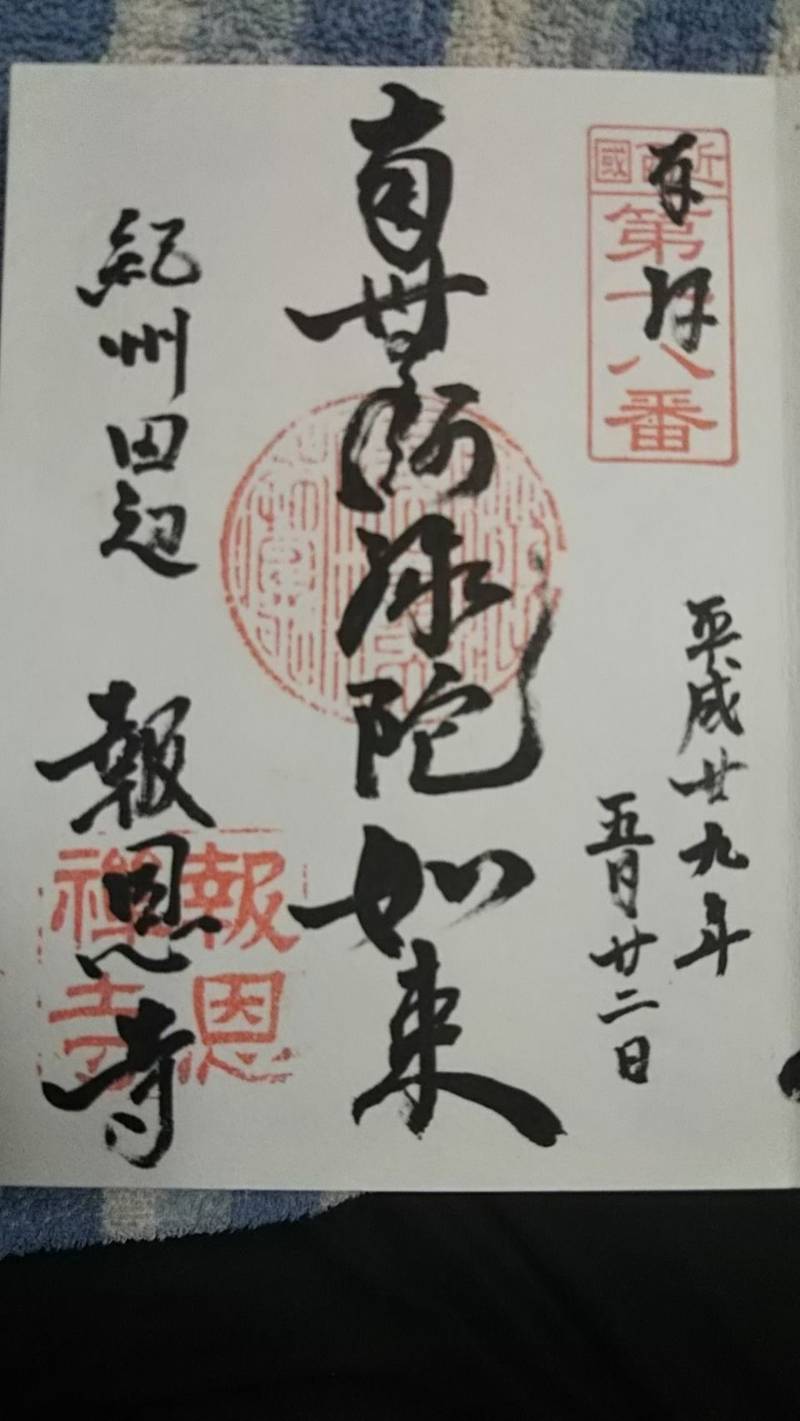 奉拝
近西國
第十八番
平成廿九年
五月廿二日
南無阿弥陀如来
紀州田辺 報恩寺
報恩
禅寺